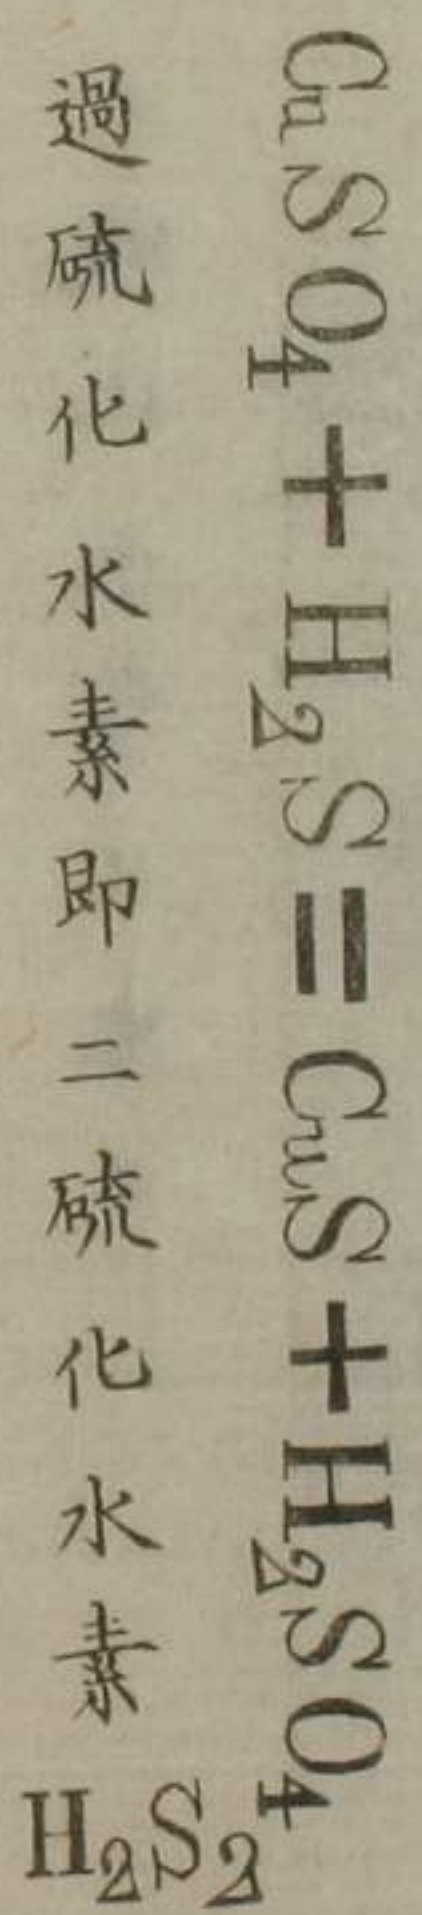 CuSO₄+H₂S=CuS+H₂SO₄
過硫化水素即二硫化水素 H₂S₂